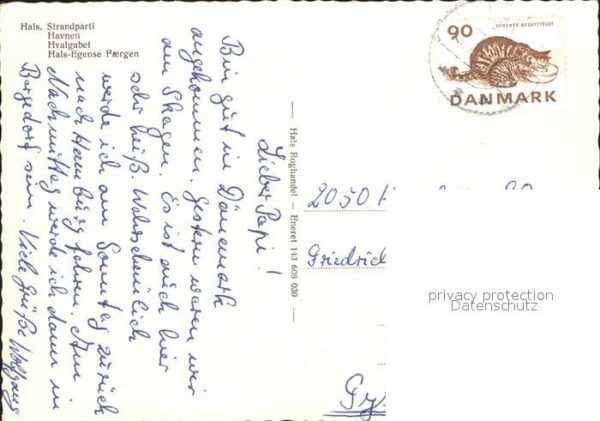 Hals. Strandparti
Havnen
Hvalgabet
Hals-Egense Pærgen
DYRENES BESKYTTELSE
90
DANMARK
Lieber Papi!
Bin gut in Dänemark
angekommen. Gestern waren wir
am Skagen. Es ist auch hier
sehr heiß. Wahrscheinlich
werde ich am Sonntag zurück
nach Hamburg fahren. Am
Nachmittag werde ich dann in
Burgdorf sein. Viele Grüße Wolfgang
Hals Boghandel — Eneret 143 608 030
2050
Friedrich
privacy protection
Datenschutz